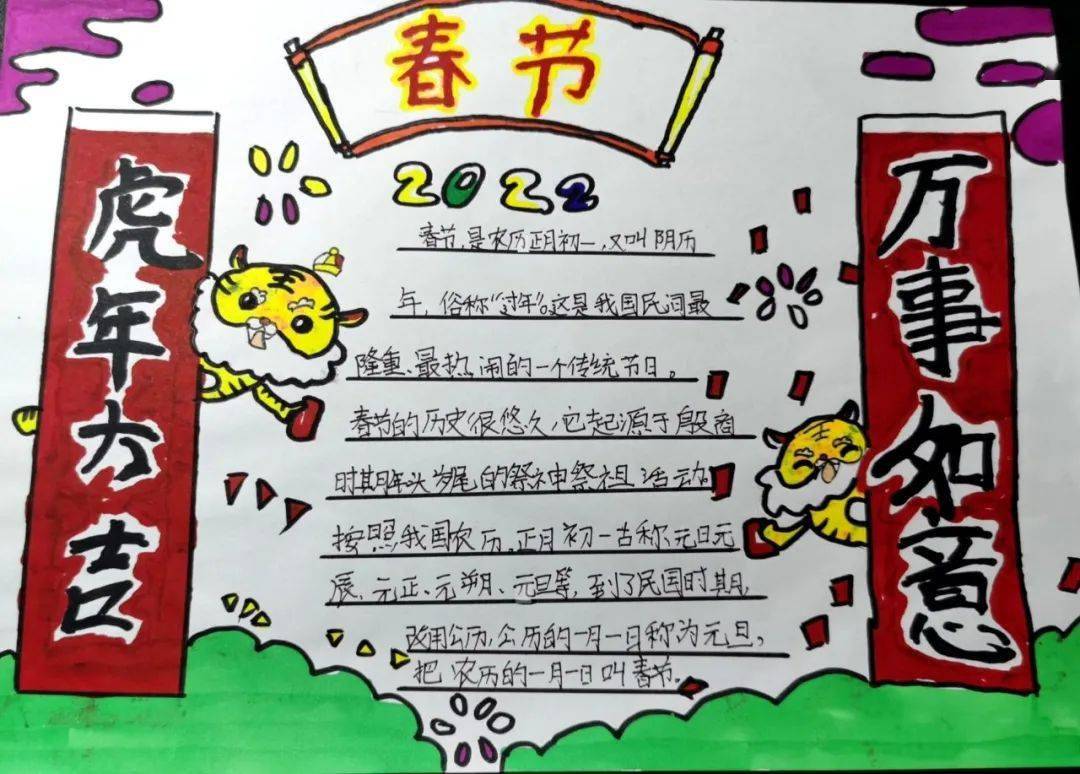 春节
2022
虎年大吉
春节,是农历正月初一,又叫阴历
年,俗称“过年”。这是我国民间最
隆重、最热闹的一个传统节日。
春节的历史很悠久,它起源于殷商
时期年头岁尾的祭神祭祖活动。
按照我国农历,正月初一古称元日元
辰、元正、元朔、元旦等,到了民国时期,
改用公历,公历的一月一日称为元旦,
把农历的一月一日叫春节。
万事如意